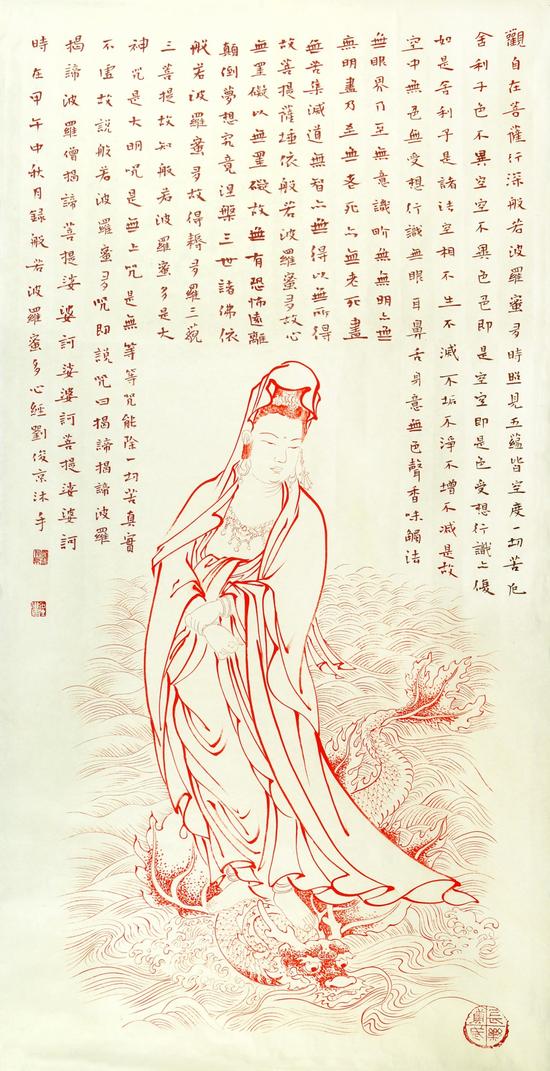 觀自在菩薩行深般若波羅蜜多時照見五蘊皆空度一切苦厄
舍利子色不異空空不異色色即是空空即是色受想行識亦復
如是舍利子是諸法空相不生不滅不垢不淨不增不減是故
空中無色無受想行識無眼耳鼻舌身意無色聲香味觸法
無眼界乃至無意識畍無無明亦無
無明盡乃至無老死亦無老死盡
無苦集滅道無智亦無得以無所得
故菩提薩埵依般若波羅蜜多故心
無罣礙以無罣礙故無有恐怖遠離
顛倒夢想究竟涅槃三世諸佛依
般若波羅蜜多故得耨多羅三藐
三菩提故知般若波羅蜜多是大
神咒是大明咒是無上咒是無等等咒能除一切苦真實
不虛故說般若波羅蜜多咒即說咒曰揭諦揭諦波羅
揭諦波羅僧揭諦菩提娑婆訶娑婆訶菩提娑婆訶
時在甲午中秋月録般若波羅蜜多心經劉俊京沐手